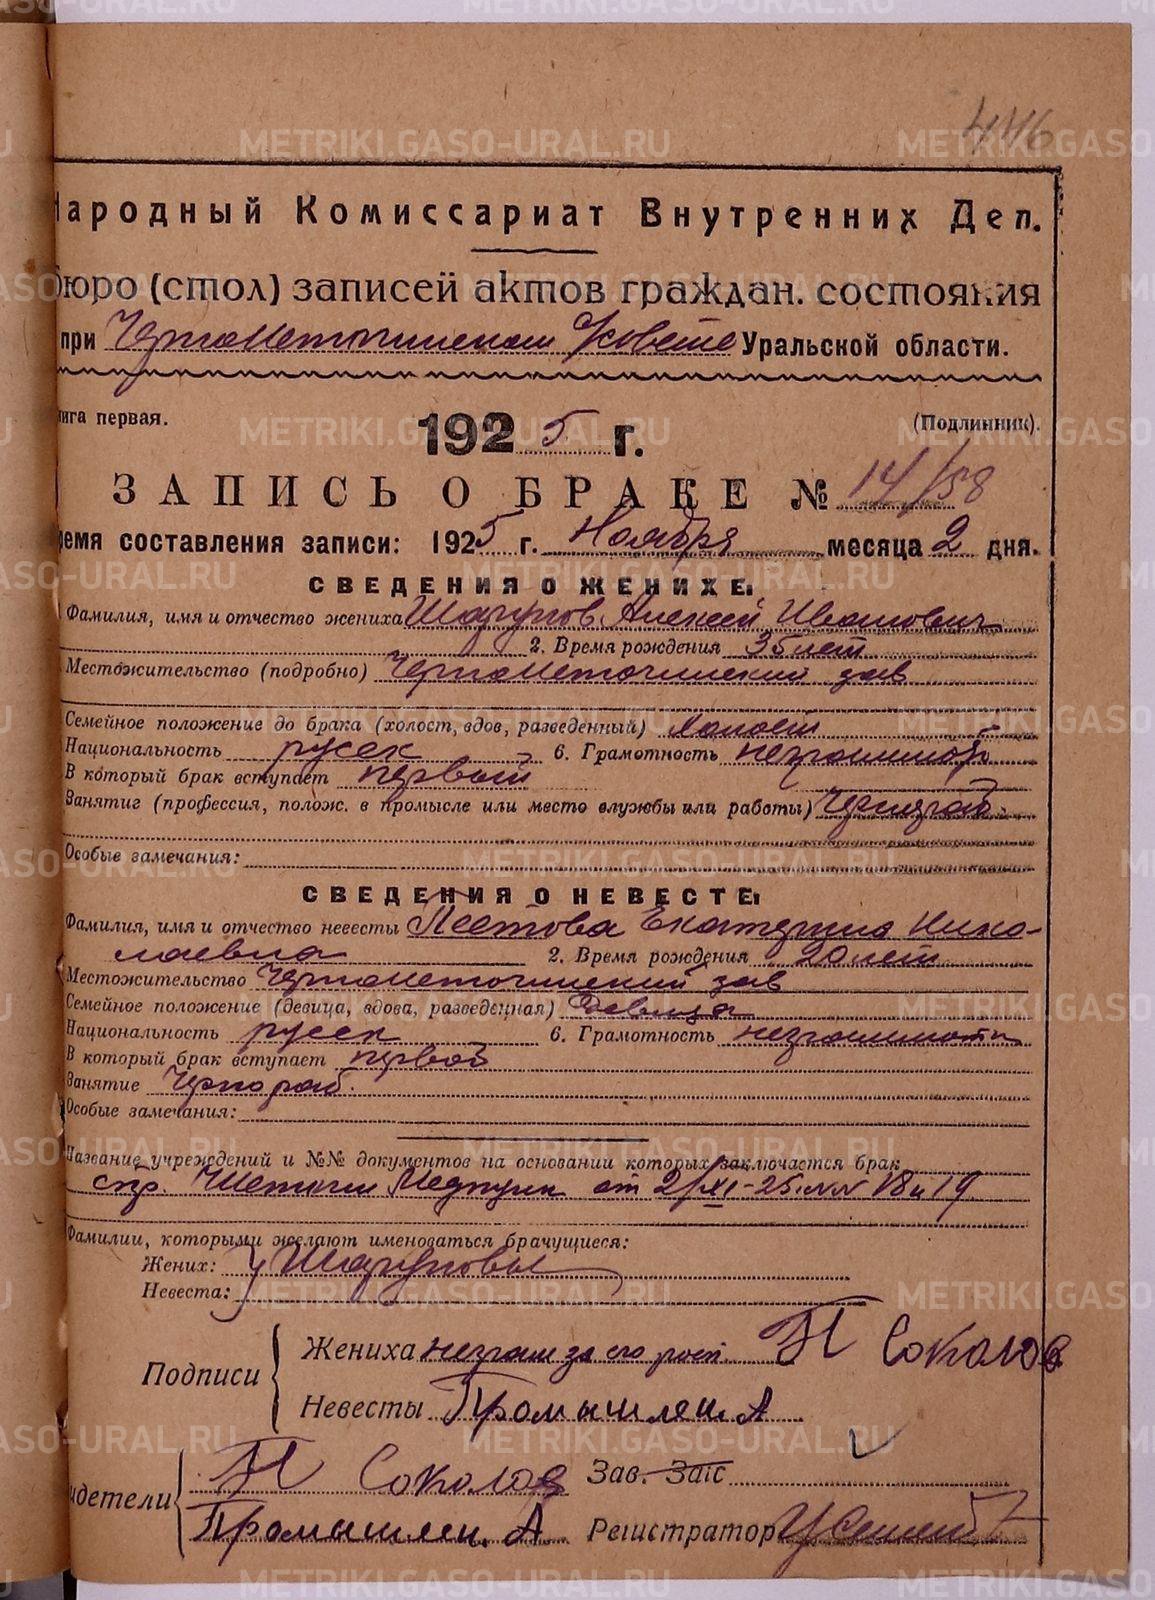 446
Народный Комиссариат Внутренних Дел.
бюро (стол) записей актов граждан. состояния
при Черноисточинском с/совете Уральской области.
книга первая. (Подлинник).
1925 г.
ЗАПИСЬ О БРАКЕ № 14/58
Время составления записи: 1925 г. Ноября месяца 2 дня.
СВЕДЕНИЯ О ЖЕНИХЕ:
Фамилия, имя и отчество жениха Шагунов Алексей Иванович
2. Время рождения 35 лет
Местожительство (подробно) Черноисточинский зав
Семейное положение до брака (холост, вдов, разведенный) Холост
Национальность русск 6. Грамотность неграмотн
В который брак вступает первый
Занятие (профессия, полож. в промысле или место службы или работы) Чернораб.
Особые замечания:
СВЕДЕНИЯ О НЕВЕСТЕ:
Фамилия, имя и отчество невесты Екатерина Нико-
лаевна 2. Время рождения 20 лет
Местожительство Черноисточинский зав
Семейное положение (девица, вдова, разведенная) Девица
Национальность русск 6. Грамотность неграмотн
В который брак вступает первой
Занятие Чернораб.
Особые замечания:
Название учреждений и №№ документов на основании которых заключается брак
спр. Чисточин Медпунк от 2/XI-25. NN 18 и 19
Фамилии, которыми желают именоваться брачущиеся:
Жених: } Шагуновы
Невеста:
Подписи
Жениха неграм за его росп. Т Соколов
Невесты Промышлен А
Свидетели
Т Соколов Зав. Загс
Промышлен. А. Регистратор
METRIKI.GASO-URAL.RU